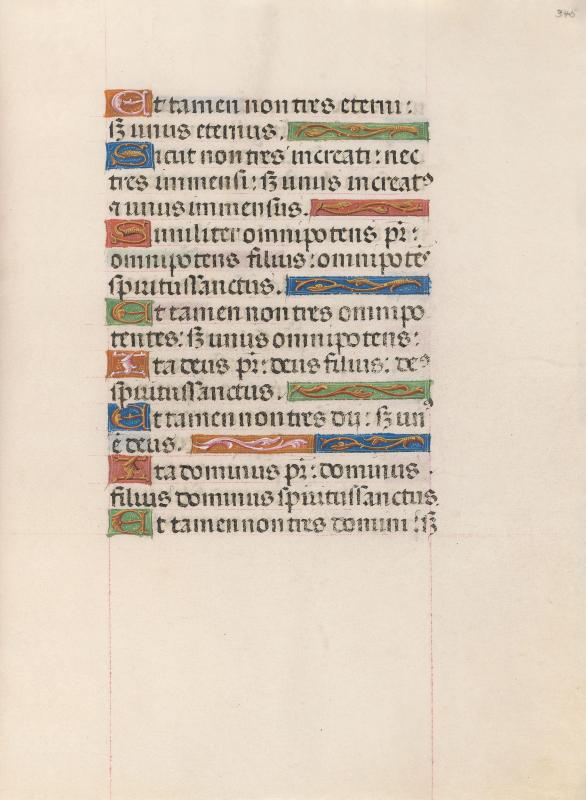 346
Et tamen non tres eterni:
sꝫ unus eternus.
Sicut non tres increati: nec
tres immensi: sꝫ unus increatꝰ
⁊ unus immensus.
Similiter omnipotens pr̄:
omnipotens filius: omnipotēs
spiritussanctus.
Et tamen non tres omnipo
tentes: sꝫ unus omnipotens:
Ita deus pr̄: deus filius: deꝰ
spiritussanctus.
Et tamen non tres dij: sꝫ unꝰ
ē deus.
Ita dominus pr̄: dominus
filius dominus spiritussanctus.
Et tamen non tres domini: sꝫ